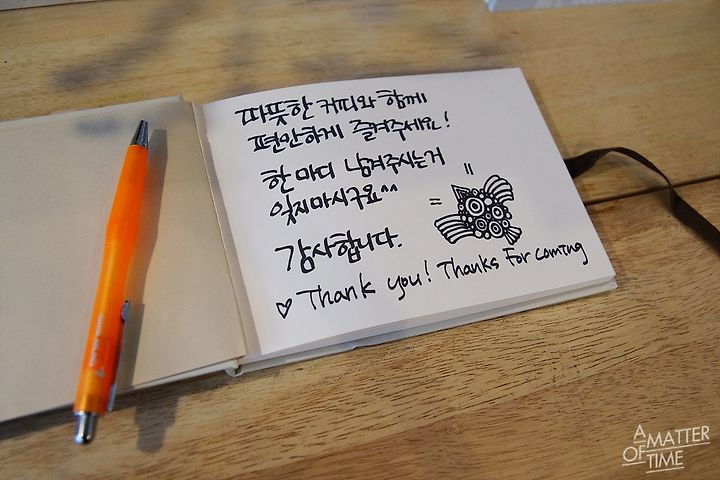 따뜻한 커피와 함께
편안하게 즐겨주세요!
한 마디 남겨주시는거
잊지마시구요^^
감사합니다.
♡ Thank you! Thanks For coming
A MATTER
OF TIME